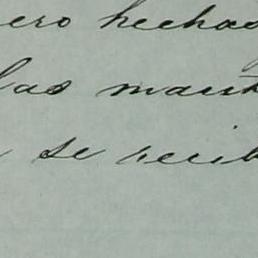 ero hechas
las mant
se recib